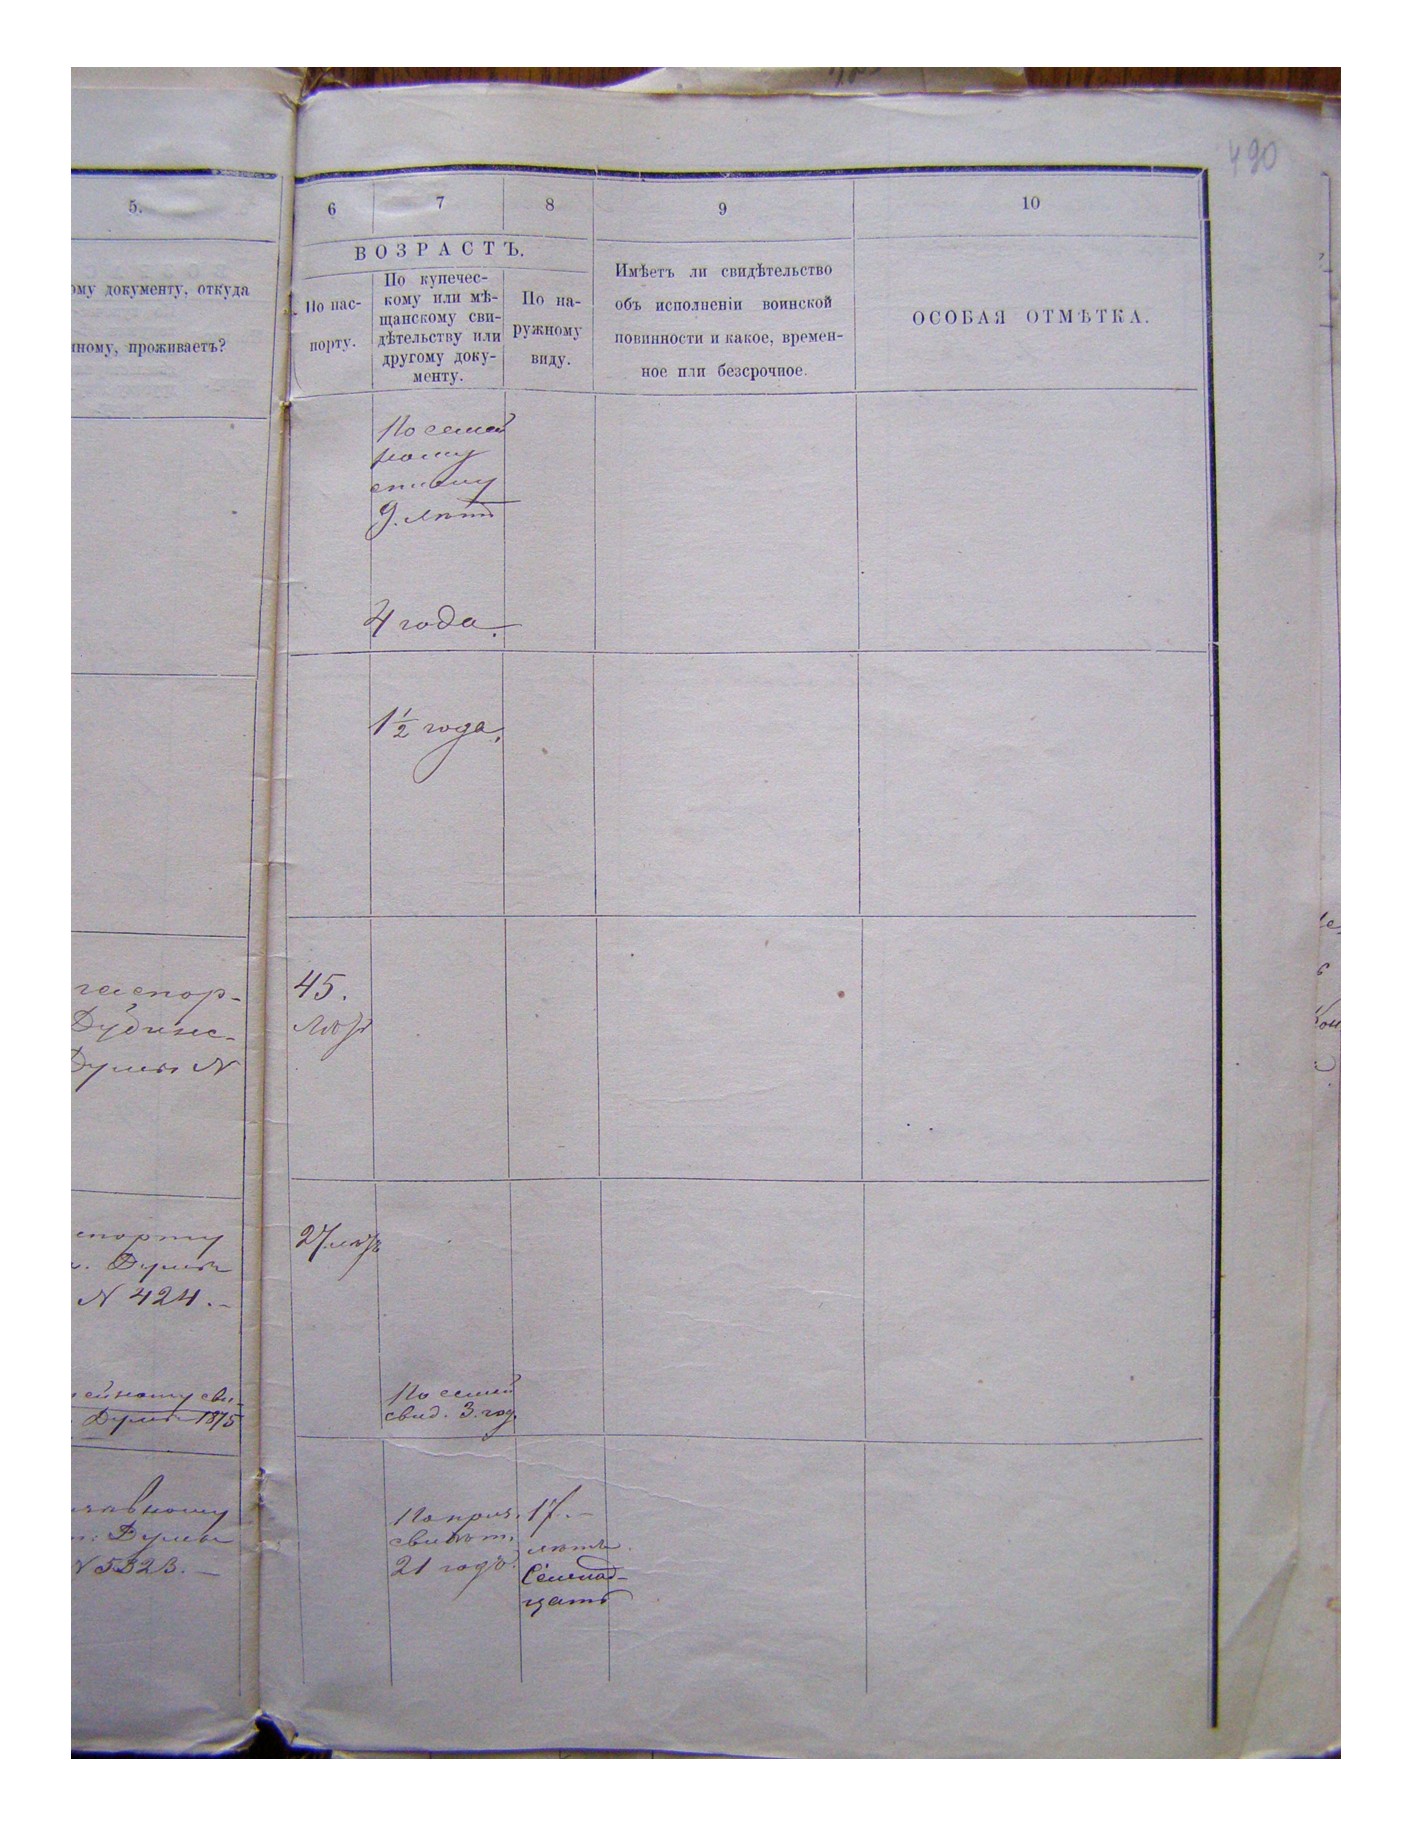 490
5.
ому документу, откуда
нному, проживаетъ?
6
7
8
9
10
ВОЗРАСТЪ.
По пас-
порту.
По купечес-
кому или мѣ-
щанскому сви-
дѣтельству или
другому доку-
менту.
По на-
ружному
виду.
Имѣетъ ли свидѣтельство
объ исполненіи воинской
повинности и какое, времен-
ное или безсрочное.
ОСОБАЯ ОТМѢТКА.
По семей
ному
списку
9. лѣтъ
4 года.
1½ года.
паспор-
Дубинс-
Думы N
45.
лѣтъ
спорту
Думы
N 424.
27 лѣтъ
ейному сви-
Думы 1875
По семей
свид. 3. год.
ному
Думы
N 5323.
По приз.
свидѣт.
21 годъ.
17.
лѣтъ.
Семнад-
цать